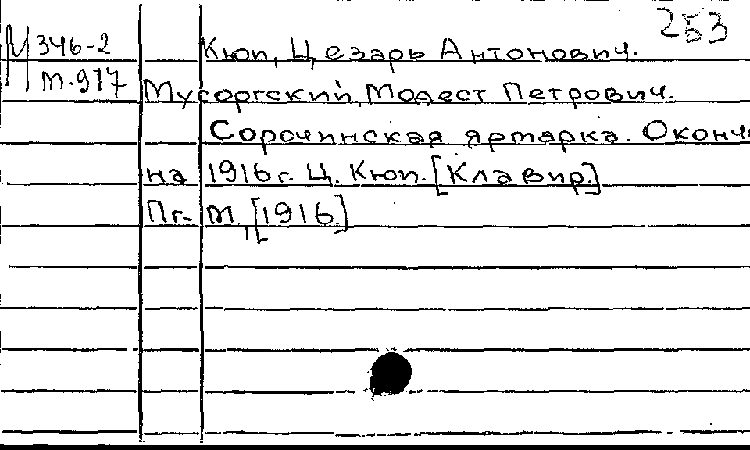 253
М 346-2 Кюи, Цезарь Антонович.
м.917 Мусоргский, Модест Петрович.
Сорочинская ярмарка. Оконч
на 1916 г. Ц. Кюи. [Клавир.]
Пг. м, [1916]